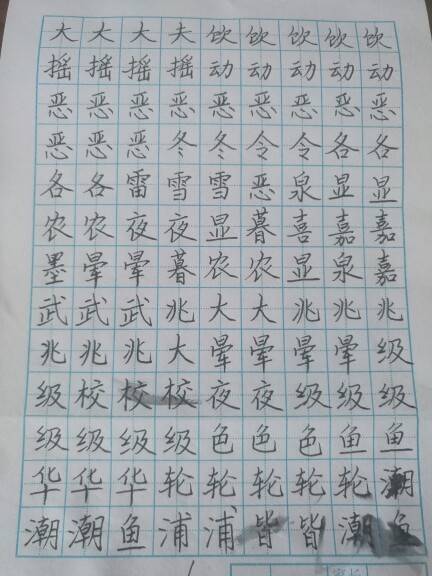 大大大夫饮饮饮饮饮
摇摇摇摇动动动动动
恶恶恶恶恶恶恶恶恶
恶恶恶冬冬令令各各
各各雷雪雪恶泉显显
农农夜夜显暮喜嘉嘉
墨晕晕暮农农显泉嘉
武武武兆大大兆兆兆
兆兆兆大晕晕晕晕级
级校校校夜夜级级级
级级级级色色色鱼鱼
华华华轮轮轮轮轮潮
潮潮鱼浦浦皆皆潮鱼